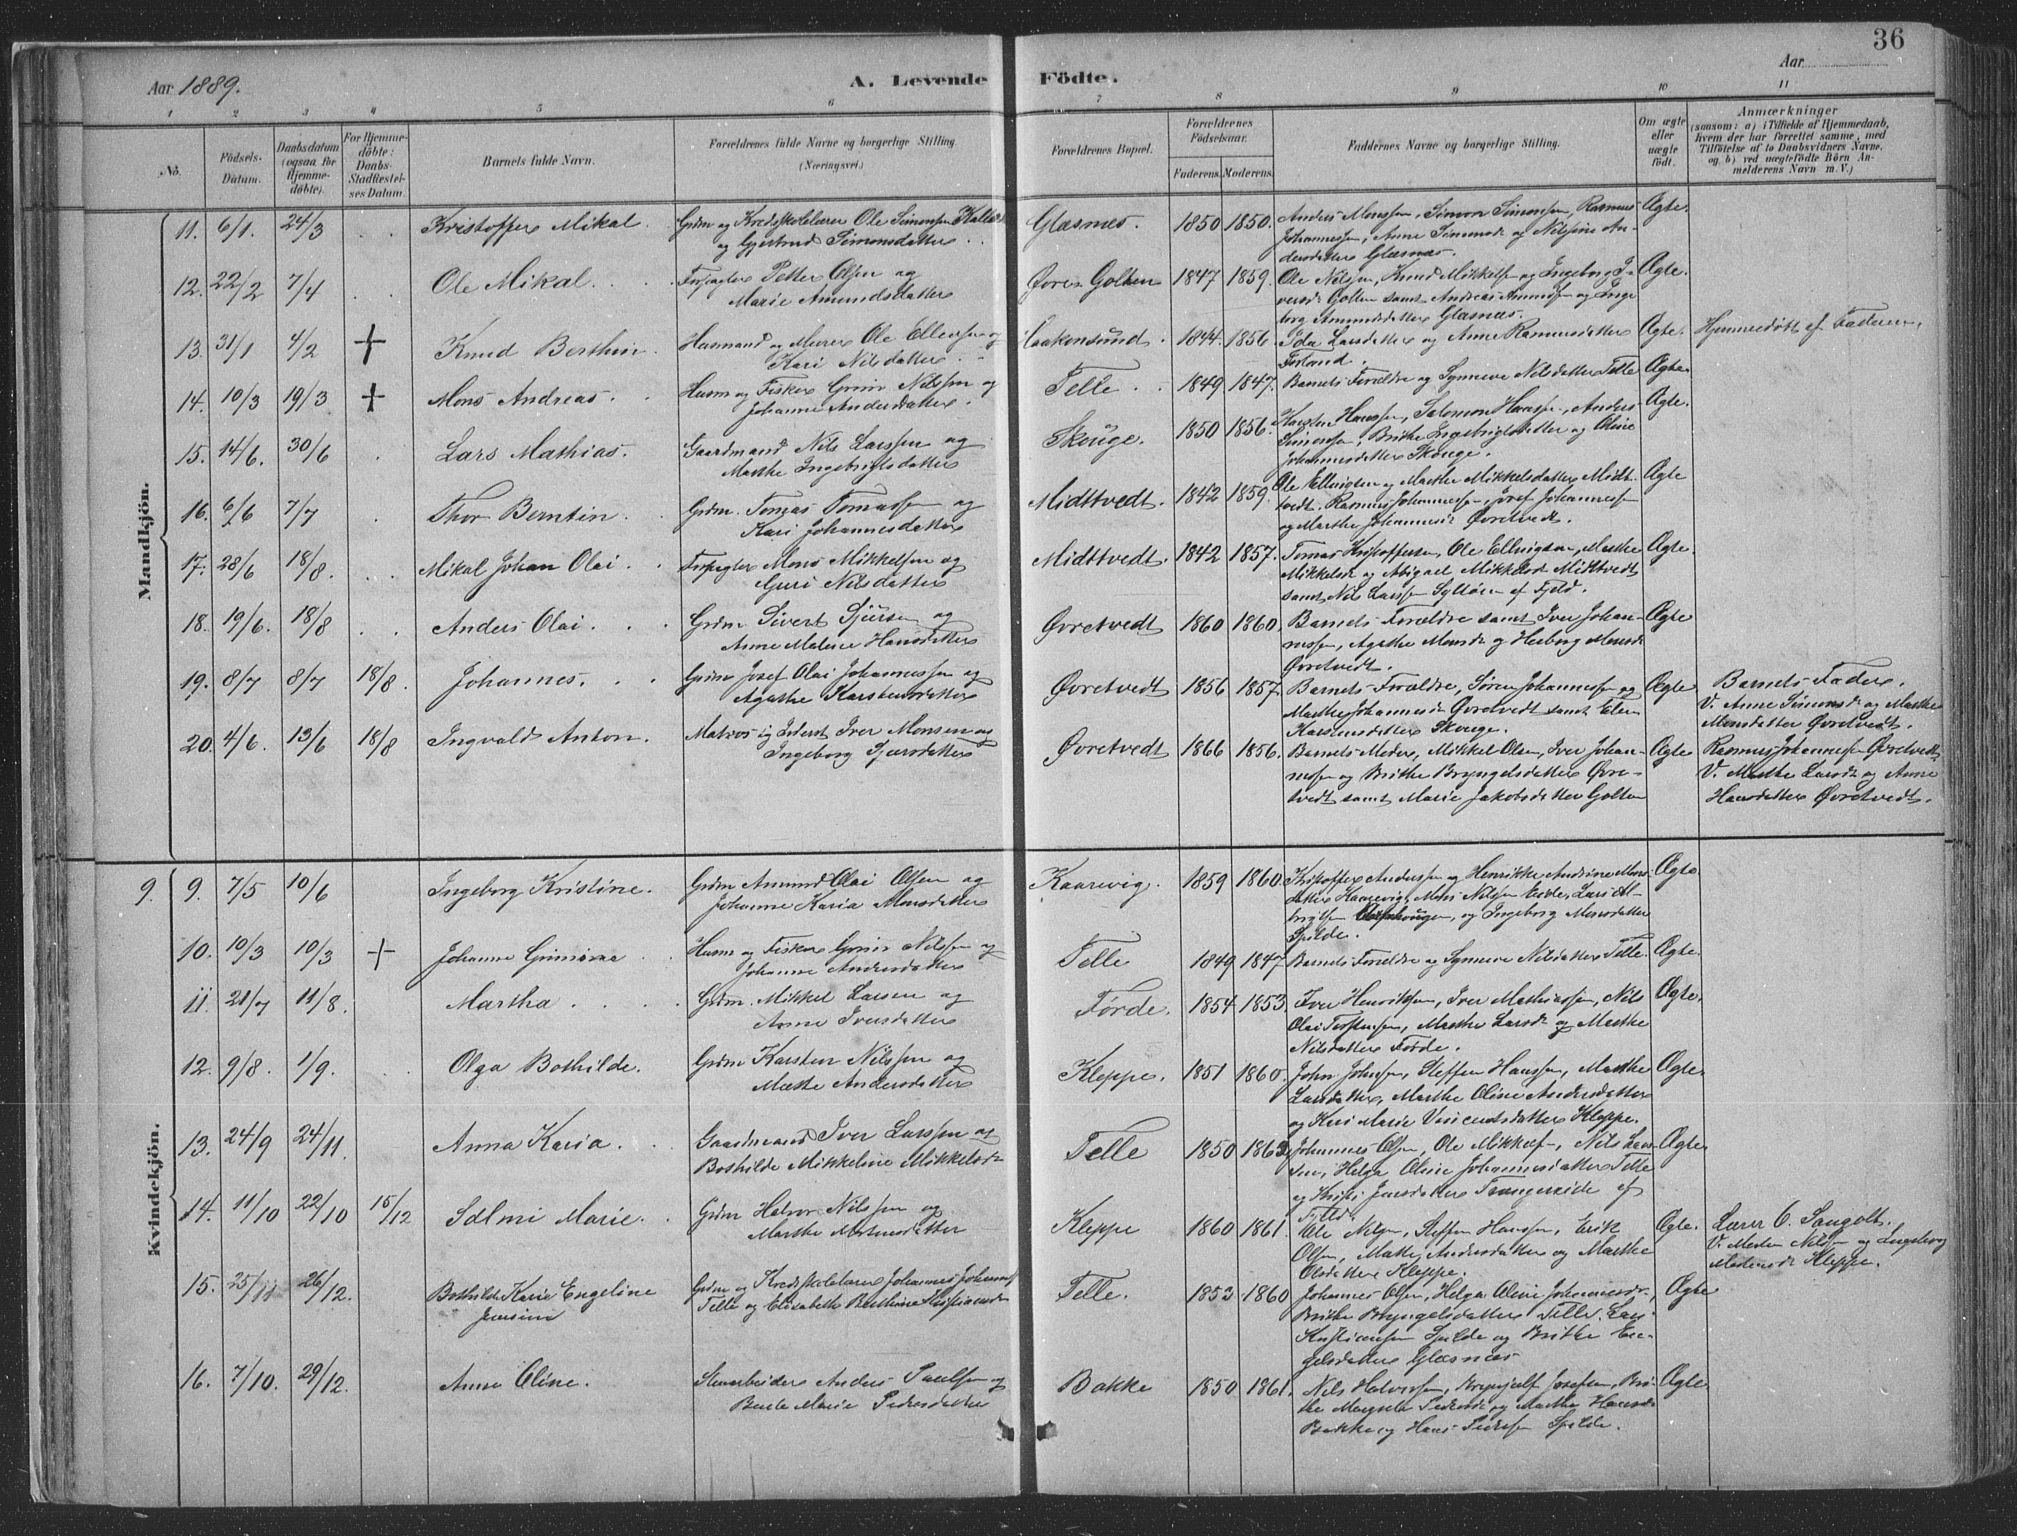 36
Aar 1889.
A. Levende Födte.
Aar
1 2 3 4 5 6 7 8 9 10 11
No.
Födsels-Datum.
Daabsdatum (ogsaa for Hjemme-döbte).
For Hjemme-döbte: Daabs-Stadfæstel-ses Datum.
Barnets fulde Navn.
Forældrenes fulde Navne og borgerlige Stilling (Næringsvei).
Forældrenes Bopæl.
Forældrenes Födselsaar.
Faderens. Moderens.
Faddernes Navne og borgerlige Stilling.
Om ægte eller uægte födt.
Anmærkninger (saasom: a) i Tilfælde af Hjemmedaab, hvem der har forrettet samme, med Tilföielse af to Daabsvidners Navne, og b) ved uægtefödte Börn An-melderens Navn m. V.)
Mandkjön.
11. 6/1. 24/3 Kristoffer Mikal. Grdm og Kredsskolelærer Ole Simonsen
og Gjertrud Simonsdatter Glæsnes. 1850 1850. Anders Monssen, Simon Simonsen, Rasmus
Johannessen, Anne Simonsd og Nilsine An-
dersdatter Glæsnes. Ægte.
12. 22/2 7/4 Ole Mikal. Petter Olsen og
Marie Amundsdatter Golten 1847 1859. Ole Nilsen, Knud Mikkelsen og Ingeborg I-
versd Golten samt Andreas Amundsen og Inge
borg Amundsdatter Glæsnes. Ægte.
13. 31/1 4/2 + Knud Berthin. Husmand og Murer Ole Ellensen og
Kari Nilsdatter Haakonsund. 1844. 1856. Larsdatter og Anne Rasmusdatter
Forland. Ægte. Hjemmedøbt af Faderen.
14. 10/3 19/3 + Mons Andreas. Husm og Fisker Grim Nilssen og
Johanne Andersdatter. Telle 1849 1847. Barnets Forældre og Synneve Nilsdatter Telle Ægte.
15. 14/6. 30/6 Lars Mathias. Gaardmand Nils Larssen og
Marthe Ingebrigtsdatter Skouge. 1850 1856. Karsten Hanssen, Salomon Hanssen, Anders
Simonsen, Brithe Ingebrigtsdatter og Oline
Johannesdatter Skouge. Ægte.
16. 6/6 7/7 Thor Berntin. Grdm. Tomas Tomassen og
Kari Johannesdatter Midttvedt. 1842 1859. Ole Ellingsen og Marthe Mikkelsdatter Midt
tvedt, Rasmus Johannessen, Josef Johannessen
og Marthe Johannesd Øvretvedt. Ægte
17. 28/6 18/8. Mikal Johan Olai. Mons Mikkelsen og
Guri Nilsdatter Midttvedt. 1842 1857. Tomas Kristoffersen, Ole Ellingsen, Marthe
Mikkelsd og Abigael Mikkelsd Midttvedt
samt Nils Larssen af Fjeld. Ægte.
18. 19/6. 18/8 Anders Olai. Grdm Sivert Sjursen og
Anne Malene Hansdatter Øvretvedt 1860 1860. Barnets Forældre samt Iver Johan-
nessen, Agathe Monsd og Herborg Monsd
Øvretvedt. Ægte
19. 8/7 8/7 18/8. Johannes. Grdm Josef Olai Johannessen og
Agathe Karstensdatter Øvretvedt 1856 1857. Barnets Forældre, Søren Johannessen og
Marthe Johannesd Øvretvedt samt Elen
Karstensdatter Skouge. Ægte Barnets Fader.
V. Anne Simonsd og Marthe
Monsdatter Øvretvedt.
20. 4/6. 13/6 18/8 Ingvald Anton. Matros og Inderst Iver Monsen og
Ingeborg Sjursdatter Øvretvedt 1866 1856. Barnets Moder, Mikkel Olsen, Iver Johan-
nessen og Brithe Bryngelsdatter Øvre-
tvedt samt Marie Jakobsdatter Golten Ægte Rasmus Johannessen Øvretvedt
V. Marthe Larsd og Anne
Hansdatter Øvretvedt.
Kvindekjön.
9. 9. 7/5 10/6 Ingeborg Kristine. Grdm Amund Olai Olsen og
Johanne Karia Monsdatter Kaarevig. 1859 1860. Kristoffer Andersen og Henrikke Andrine Mons
datter Kaarevig, Mons Nilsen Eide, Lars
og Ingeborg Monsdatter
Spilde. Ægte
10. 10/3 10/3 + Johanne Husm og Fisker Grim Nilssen og
Johanne Andersdatter Telle 1849 1847 Barnets Forældre og Synneve Nilsdatter Telle. Ægte.
11. 21/7 11/8. Martha Grdm. Mikkel Larsen og
Anne Iversdatter Førde. 1854 1853. Iver Henriksen, Iver Mathiassen, Nils
Olai Torstensen, Marthe Larsd og Marthe
Nilsdatter Førde. Ægte.
12. 9/8. 1/9. Olga Bothilde. Grdm Karsten Nilssen og
Marthe Andersdatter Kleppe. 1851 1860. John Johnsen, Steffen Hanssen, Marthe
Larsdatter, Marthe Oline Andersdatter
og Kari Marie Vincentsdatter Kleppe. Ægte.
13. 24/9 24/11. Anna Karia. Gaardmand Iver Larssen og
Bothilde Mikkeline Mikkelsd Telle 1850 Johannes Olsen, Ole Mikkels, Nils Lars
sen, Helga Oline Johannesdatter Telle
og af
Fjeld. Ægte.
14. 11/10 22/10 15/12 Salmi Marie. Grdm Halvor Nilssen og
Marthe Mortensdatter Kleppe 1860 1861. Ole Nilsen, Steffen Hanssen, Erik
Olsen, Marthe Andersdatter og Marthe
Olsdatter Kleppe. Ægte. Lærer O. Sangolt.
V. Morten Nilsen og Ingeborg
Mortensd Kleppe.
15. 25/11 26/12. Bothilde Karie Engeline
Jensine Grdm og Kredsskolelærer Johannes Johannes
Telle og Elisabeth Berthine Kristiansd Telle. 1853 1860 Johannes Olsen, Helga Oline Johannesd,
Brithe Bryngelsdatter Telle, Lars
Kristiansen Spilde og Brithe En-
gelsdatter Glæsnæs Ægte
16. 7/10. 29/12. Anne Oline. Stenarbeider Anders Paulsen og
Berte Marie Pedersdatter Bakke 1850 1861. Nils Halvorsen, Brynjulf Josefsen, Bri-
the Margreta Pedersd og Marthe Hansd
Bakke og Hans Pedersen Spilde. Ægte